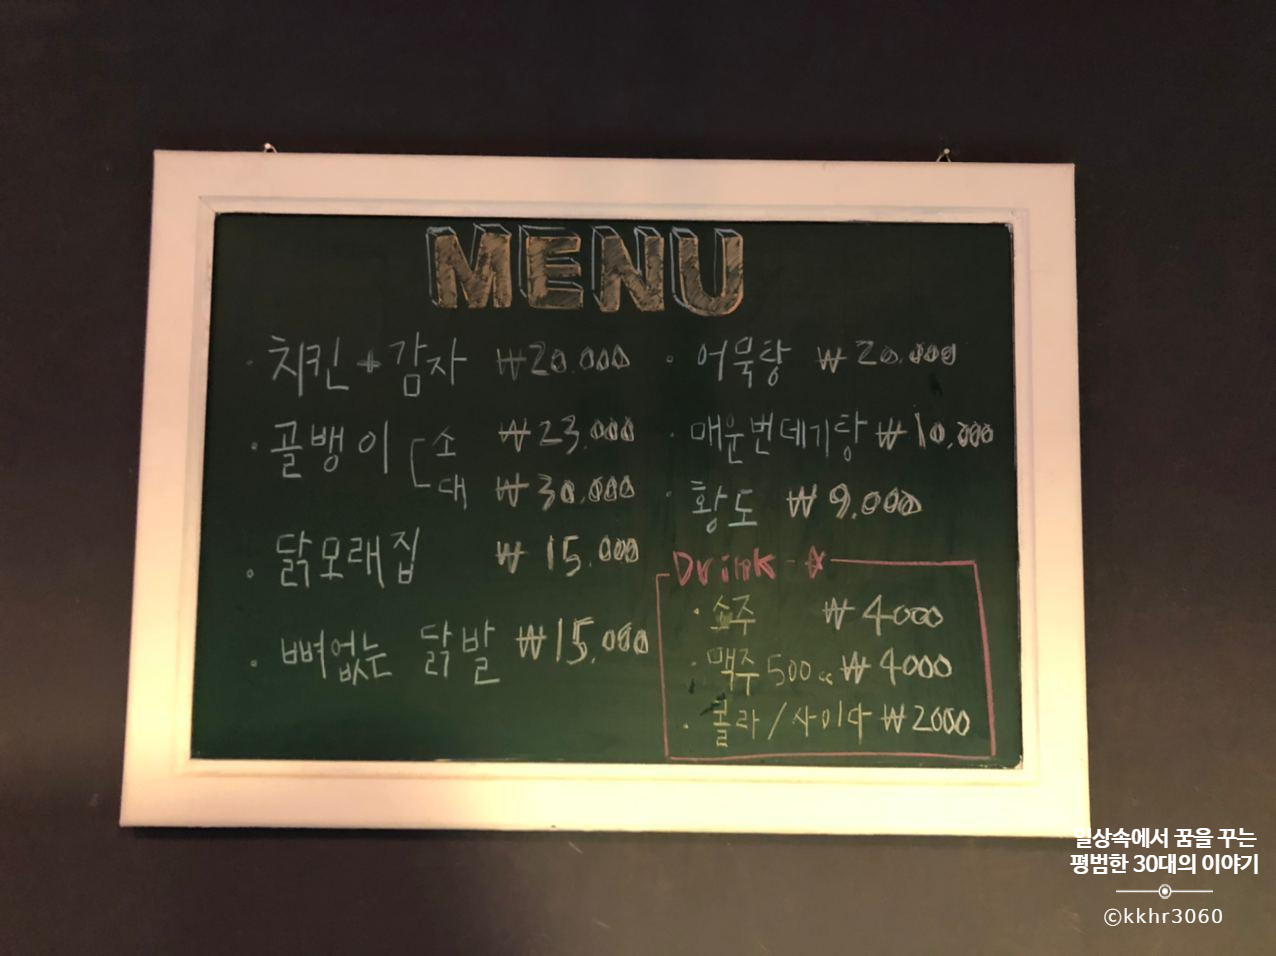 MENU
· 치킨 + 감자 ₩20.000
· 골뱅이 소 ₩23.000
대 ₩30,000
· 닭모래집 ₩15.000
· 뼈없는 닭발 ₩15.000
· 어묵탕 ₩20.000
· 매운번데기탕 ₩10,000
· 황도 ₩9.000
Drink -☆
· 소주 ₩4000
· 맥주 500cc ₩4000
· 콜라 / 사이다 ₩2000
일상속에서 꿈을 꾸는
평범한 30대의 이야기
©kkhr3060